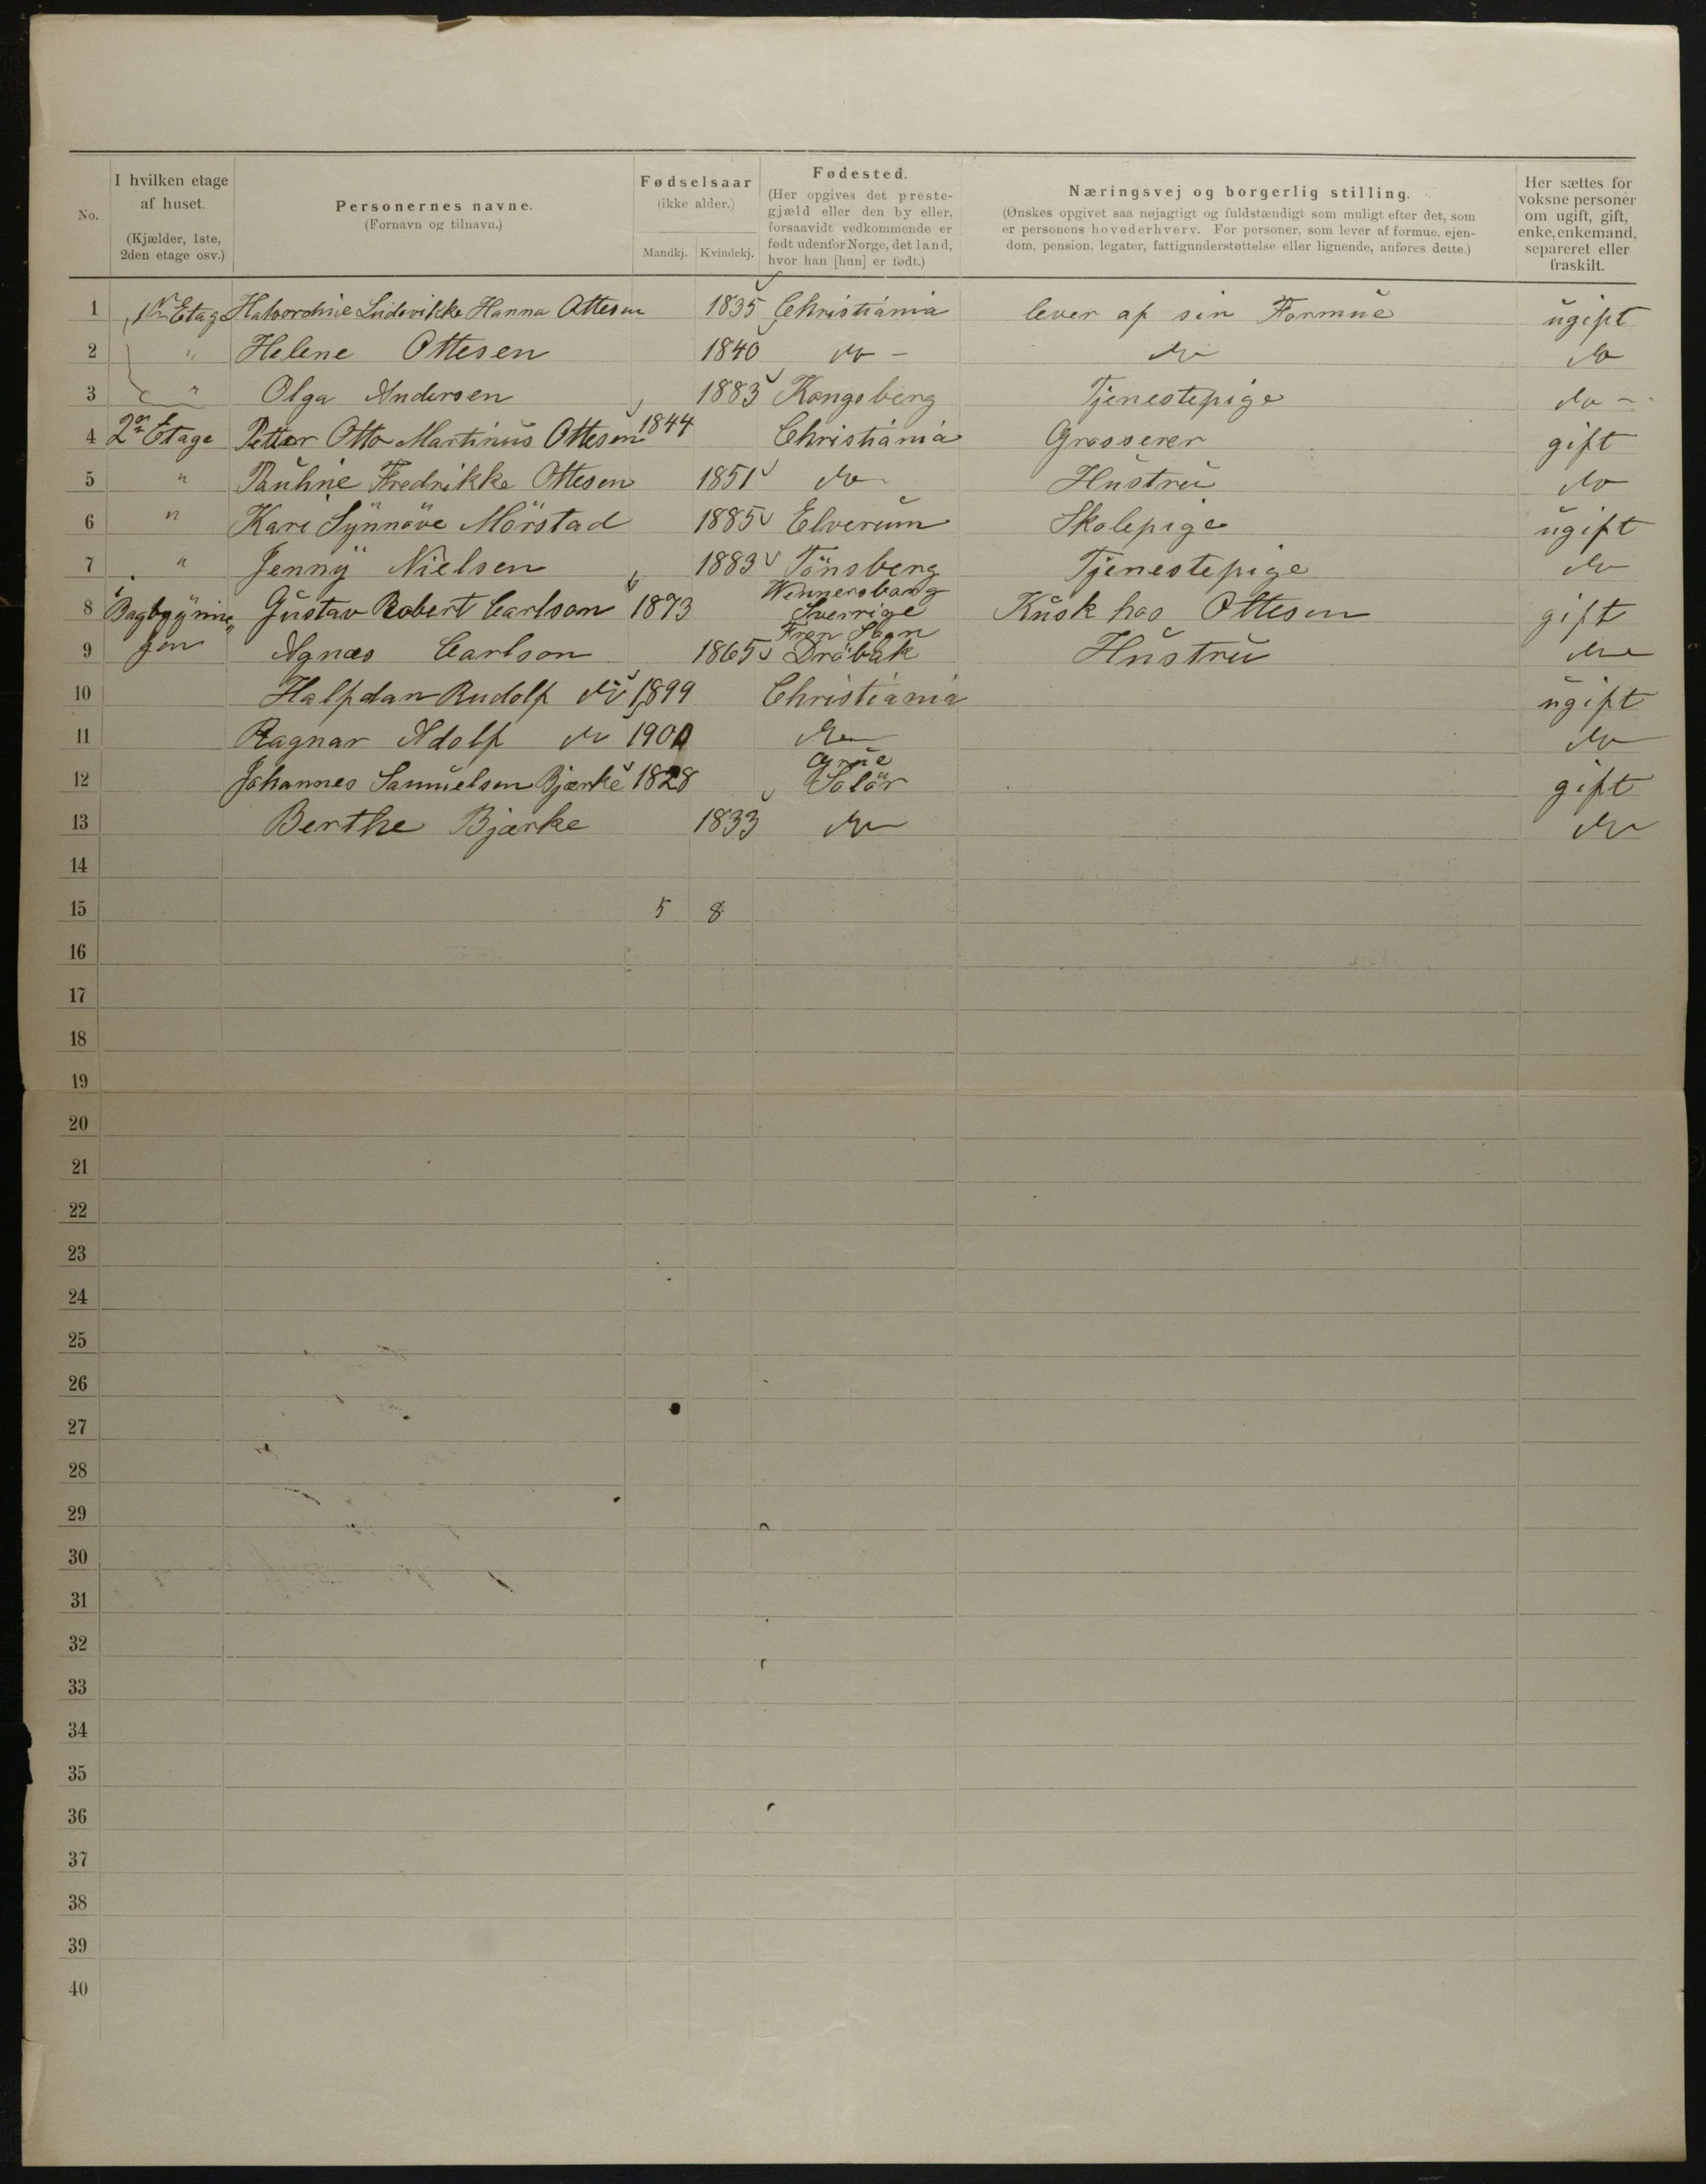 No.
I hvilken etage af huset. (Kjælder, 1ste, 2den etage osv.)
Personernes navne. (Fornavn og tilnavn.)
Fødselsaar (ikke alder.)
Mandkj. Kvindekj.
Fødested. (Her opgives det prestegjæld eller den by eller, forsaavidt vedkommende er født udenfor Norge, det land, hvor han [hun] er født.)
Næringsvej og borgerlig stilling.
(Ønskes opgivet saa nøjagtigt og fuldstændigt som muligt efter det, som
er personens hovederhverv. For personer, som lever af formue, ejen-
dom, pension, legater, fattigunderstøttelse eller lignende, anføres dette.)
Her sættes for voksne personer om ugift, gift, enke, enkemand, separeret eller fraskilt.
1 1ste Etage Halvordine Ludovikke Hanna Ottesen 1835 Christiania lever af sin Formue ugift
2 " Helene Ottesen 1840 do - do do
3 " Olga Andersen 1883 Kongsberg Tjenestepige do -
4 2den Etage Petter Otto Martinus Ottesen 1844 Christiania Grosserer gift
5 " Pauline Fredrikke Ottesen 1851 do Hustru do
6 " Kari Synnöve Mörstad 1885 Elverum Skolepige ugift
7 " Jenny Nielsen 1883 Tönsberg Tjenestepige do
8 i Bagbygnin Gustav Robert Carlson 1873 Wennersborg Sverrige Kusk hos Ottesen gift
9 gen Agnes Carlson 1865 Dröbak Hustru do
10 Halfdan Rudolf do 1899 Christiania ugift
11 Ragnar Adolf do 1900 do do
12 Johannes Samuelsen Bjærke 1828 Grue Solör gift
13 Berthe Bjærke 1833 do do
14
15 5 8
16
17
18
19
20
21
22
23
24
25
26
27
28
29
30
31
32
33
34
35
36
37
38
39
40